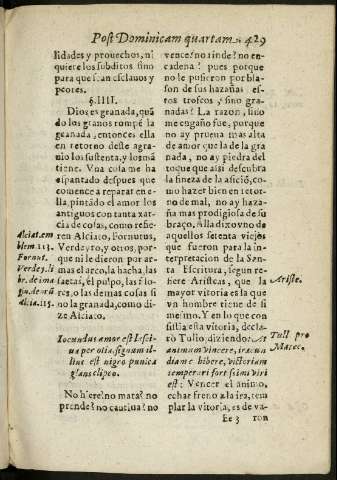 Post Dominicam quartam. 429
lidades y prouechos, ni
quiere los subditos sino
para que sean esclauos y
peores.
§. IIII.
Dios es granada, quã
do los granos rompē la
granada, entonces ella
en retorno deste agra-
uio los sustenta, y los mã
tiene. Vna cosa me ha
espantado despues que
comence a reparar en e-
lla, pintādo el amor los
antiguos con tanta xar-
cia de cosas, como refie-
ren Alciato, Fornutus,
Verdeyro, y otros, por-
que ni le dieron por ar-
mas el arco, la hacha, las
saetas, el pulpo, las flo-
res, o las demas cosas si
no la granada, como di-
ze Alciato.
Iocundus amor est lasci-
ua per otia, signum il-
lius est nigro punica
glans clipeo.
No hiere? no mata? no
prende? no cautiua? no
Alciat. em
blem. 113.
Fornut.
Verdey. li
br. de ima
alcia. 115.
vence? no rinde? no en-
cadena? pues porque
no le pusieron por bla-
son de sus hazañas es-
tos trofeos, sino gra-
nadas? La razon, sino
me engaño fue, porque
no ay prueua mas alta
de amor que la de la gra
nada, no ay piedra del
toque que assi descubra
la fineza de la aficiõ, co-
mo hazer bien en retor-
no de mal, no ay haza-
ña mas prodigiosa de su
braço. Alla dixo vno de
aquellos setenta viejos
que fueron para la in-
terpretacion de la San-
ta Escritura, segun re-
fiere Aristeas, que la
mayor vitoria es la que
vn hombre tiene de si
mesmo. Y en lo que con
sistia esta vitoria, decla-
rò Tulio, diziendo:
animum vincere, iracun
diam cohibere, victoriam
temperari fortissimi viri
est: Vencer el animo,
echar freno a la ira, tem
plar la vitoria, es de va-
Ariste.
Tull pro
Marce.
Ee 3 ron